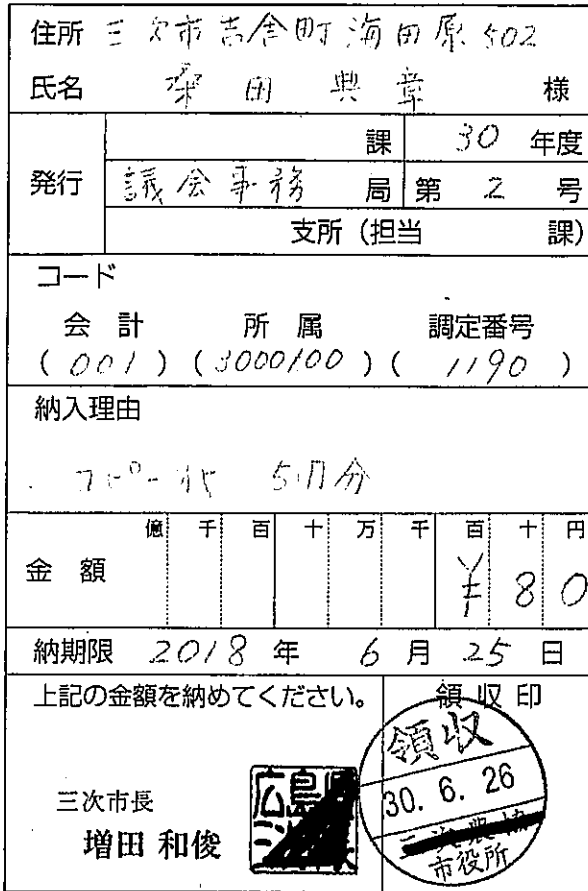 住所 三次市吉舎町海田原502
氏名 桑田 典章 様
発行 課 30 年度
議会事務 局 第 2 号
支所(担当 課)
コード
会計 所属 調定番号
(001)(3000100)(1190)
納入理由
コピー代 5月分
億 千 百 十 万 千 百 十 円
金額 ¥80
納期限 2018 年 6 月 25 日
上記の金額を納めてください。
領収印
領収
30. 6. 26
市役所
三次市長
増田 和俊
広島県